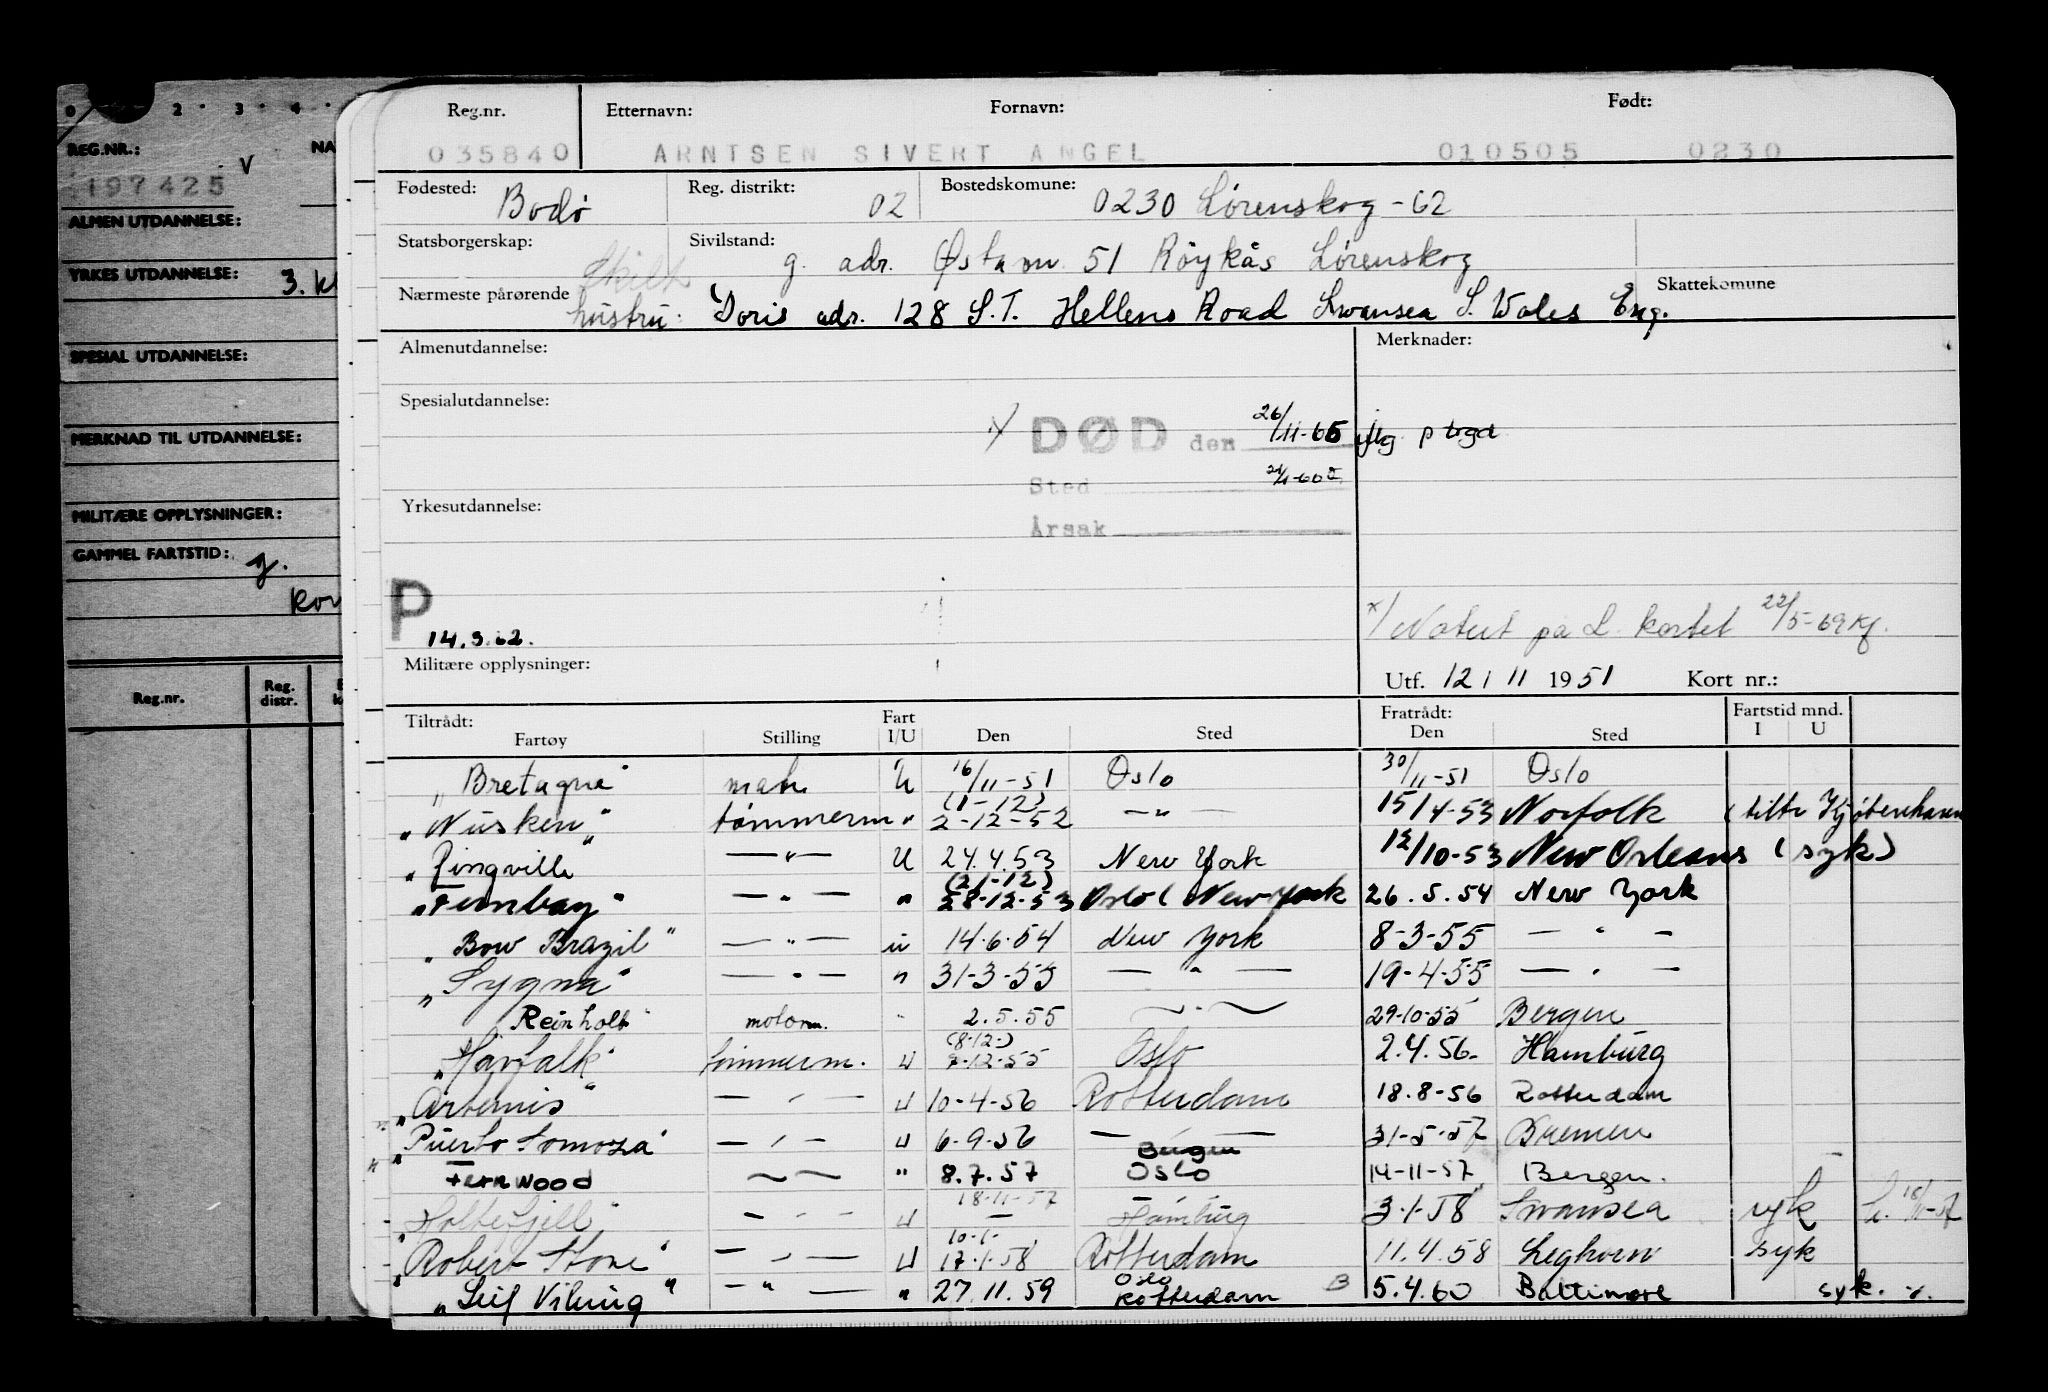 0 2 · 3 · 4 ·
REG.NR.: V NA
197425
ALMEN UTDANNELSE:
YRKES UTDANNELSE: 3. kl
SPESIAL UTDANNELSE:
MERKNAD TIL UTDANNELSE:
MILITÆRE OPPLYSNINGER:
GAMMEL FARTSTID: g.
kon
Reg.nr. Reg. distr.
Reg.nr. Etternavn: Fornavn: Født:
035840 ARNTSEN SIVERT ANGEL 010505 0230
Fødested: Bodø Reg. distrikt: 02 Bostedskomune: 0230 Lørenskog - 62
Statsborgerskap: Sivilstand: g. adr. Østam 51 Røykås Lørenskog
Skilt
Nærmeste pårørende Skattekomune
hustru: Doris adr. 128 S.T. Hellens Road Swansea S. Wales Eng.
Almenutdannelse: Merknader:
Spesialutdannelse:
x/ DØD den 26/11-65
Sted
Yrkesutdannelse:
Årsak
P
14.9.62.
x/ Notert på L. kortet 22/5-69 Kf.
Militære opplysninger: Utf. 12 / 11 1951 Kort nr.:
Tiltrådt: Fart Fratrådt: Fartstid mnd.
Fartøy Stilling I/U Den Sted Den Sted I U
"Bretagne" matr. U 16/11-51 Oslo 30/11-51 Oslo
(1-12)
"Nusken" tømmerm " 2-12-52 — " — 15/4-53 Norfolk (tiltr Kjøbenhavn
"Ringville" — " — U 24.4.53 New York 12/10-53 New Orleans (syk)
(21-12)
"Fernbay" — " — " 28-12-53 Oslo ( New York 26.5.54 New York
"Bow Brazil" — " — u 14.6.54 New York 8-3-55 — " —
"Sygna" — " — " 31-3-55 — " — 19-4-55 — " —
Reinholt" motorm. " 2.5.55 — " — 29-10-55 Bergen
(8-12-)
"Havfalk" tømmerm. U 7-12-55 Oslo 2.4.56- Hamburg
"Artemis" — " — U 10-4-56 Rotterdam 18.8-56 Rotterdam
"Puerto Somoza" — " — U 6-9-56 — " — 31-5-57 Bremen
Bergen
Fernwood — " — " 8.7.57 Oslo 14-11-57 Bergen.
18-11-57
"Holtefjell" — " — U — Hamburg 3-1-58 Swansea syk
10-1-
"Robert Stove" — " — U 17-1-58 Rotterdam 11.4.58 Leghorn syk
Oslo
"Leif Viking" — " — " 27.11.59 Rotterdam B 5.4.60 Baltimore syk.